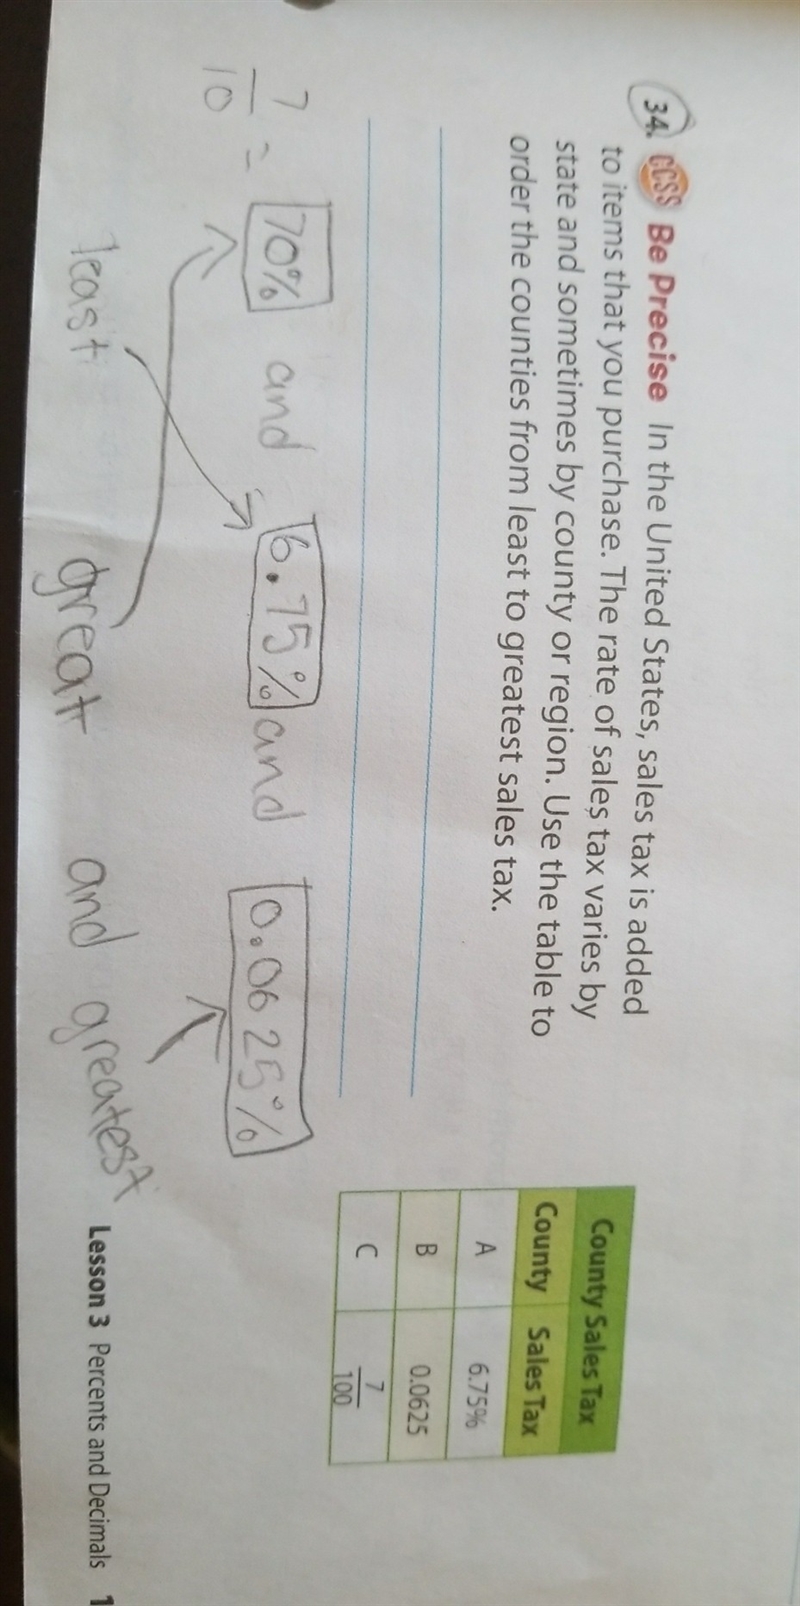 34. CCSS Be Precise In the United States, sales tax is added
to items that you purchase. The rate of sales tax varies by
state and sometimes by county or region. Use the table to
order the counties from least to greatest sales tax.
County Sales Tax
County Sales Tax
A 6.75%
B 0.0625
C 7/100
7/10 = 70% and 6.75% and 0.0625%
least great and greatest
Lesson 3 Percents and Decimals 1